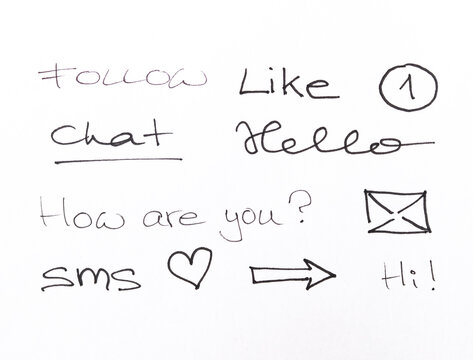 Follow Like 1
Chat Hello
How are you?
sms Hi!